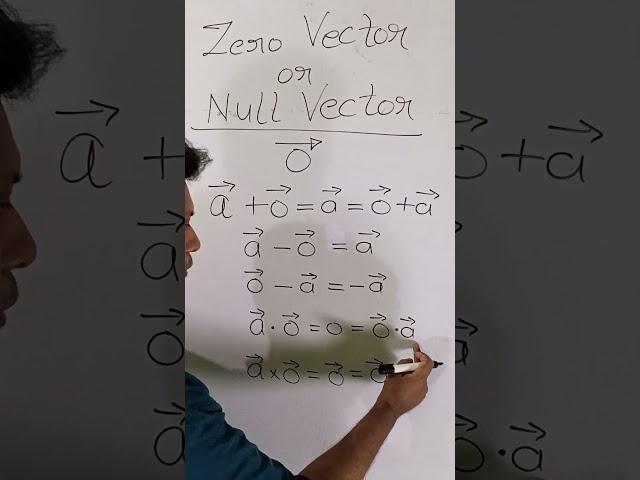 Zero Vector
or
Null Vector
→0
→a + →0 = →a = →0 + →a
→a − →0 = →a
→0 − →a = −→a
→a · →0 = 0 = →0 · →a
→a × →0 = →0 = →0